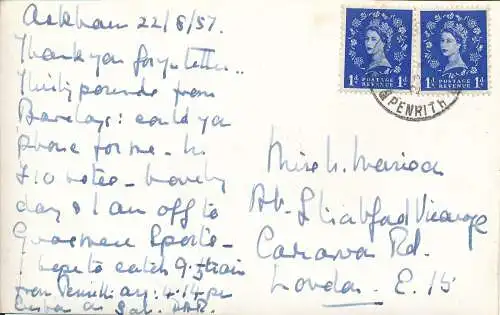 Askham 22/8/57.
Thank you for yr letter..
Thirty pounds from
Barclays: could you
phone for me - in
£10 notes - Lovely
day & I am off to
Grasmere Sports -
I hope to catch 9.5 train
from Penrith arr: 4.14 pm
on Sat.
1d POSTAGE REVENUE 1d
1d POSTAGE REVENUE 1d
PENRITH
Miss
St. Vicarage
Rd.
London E. 15